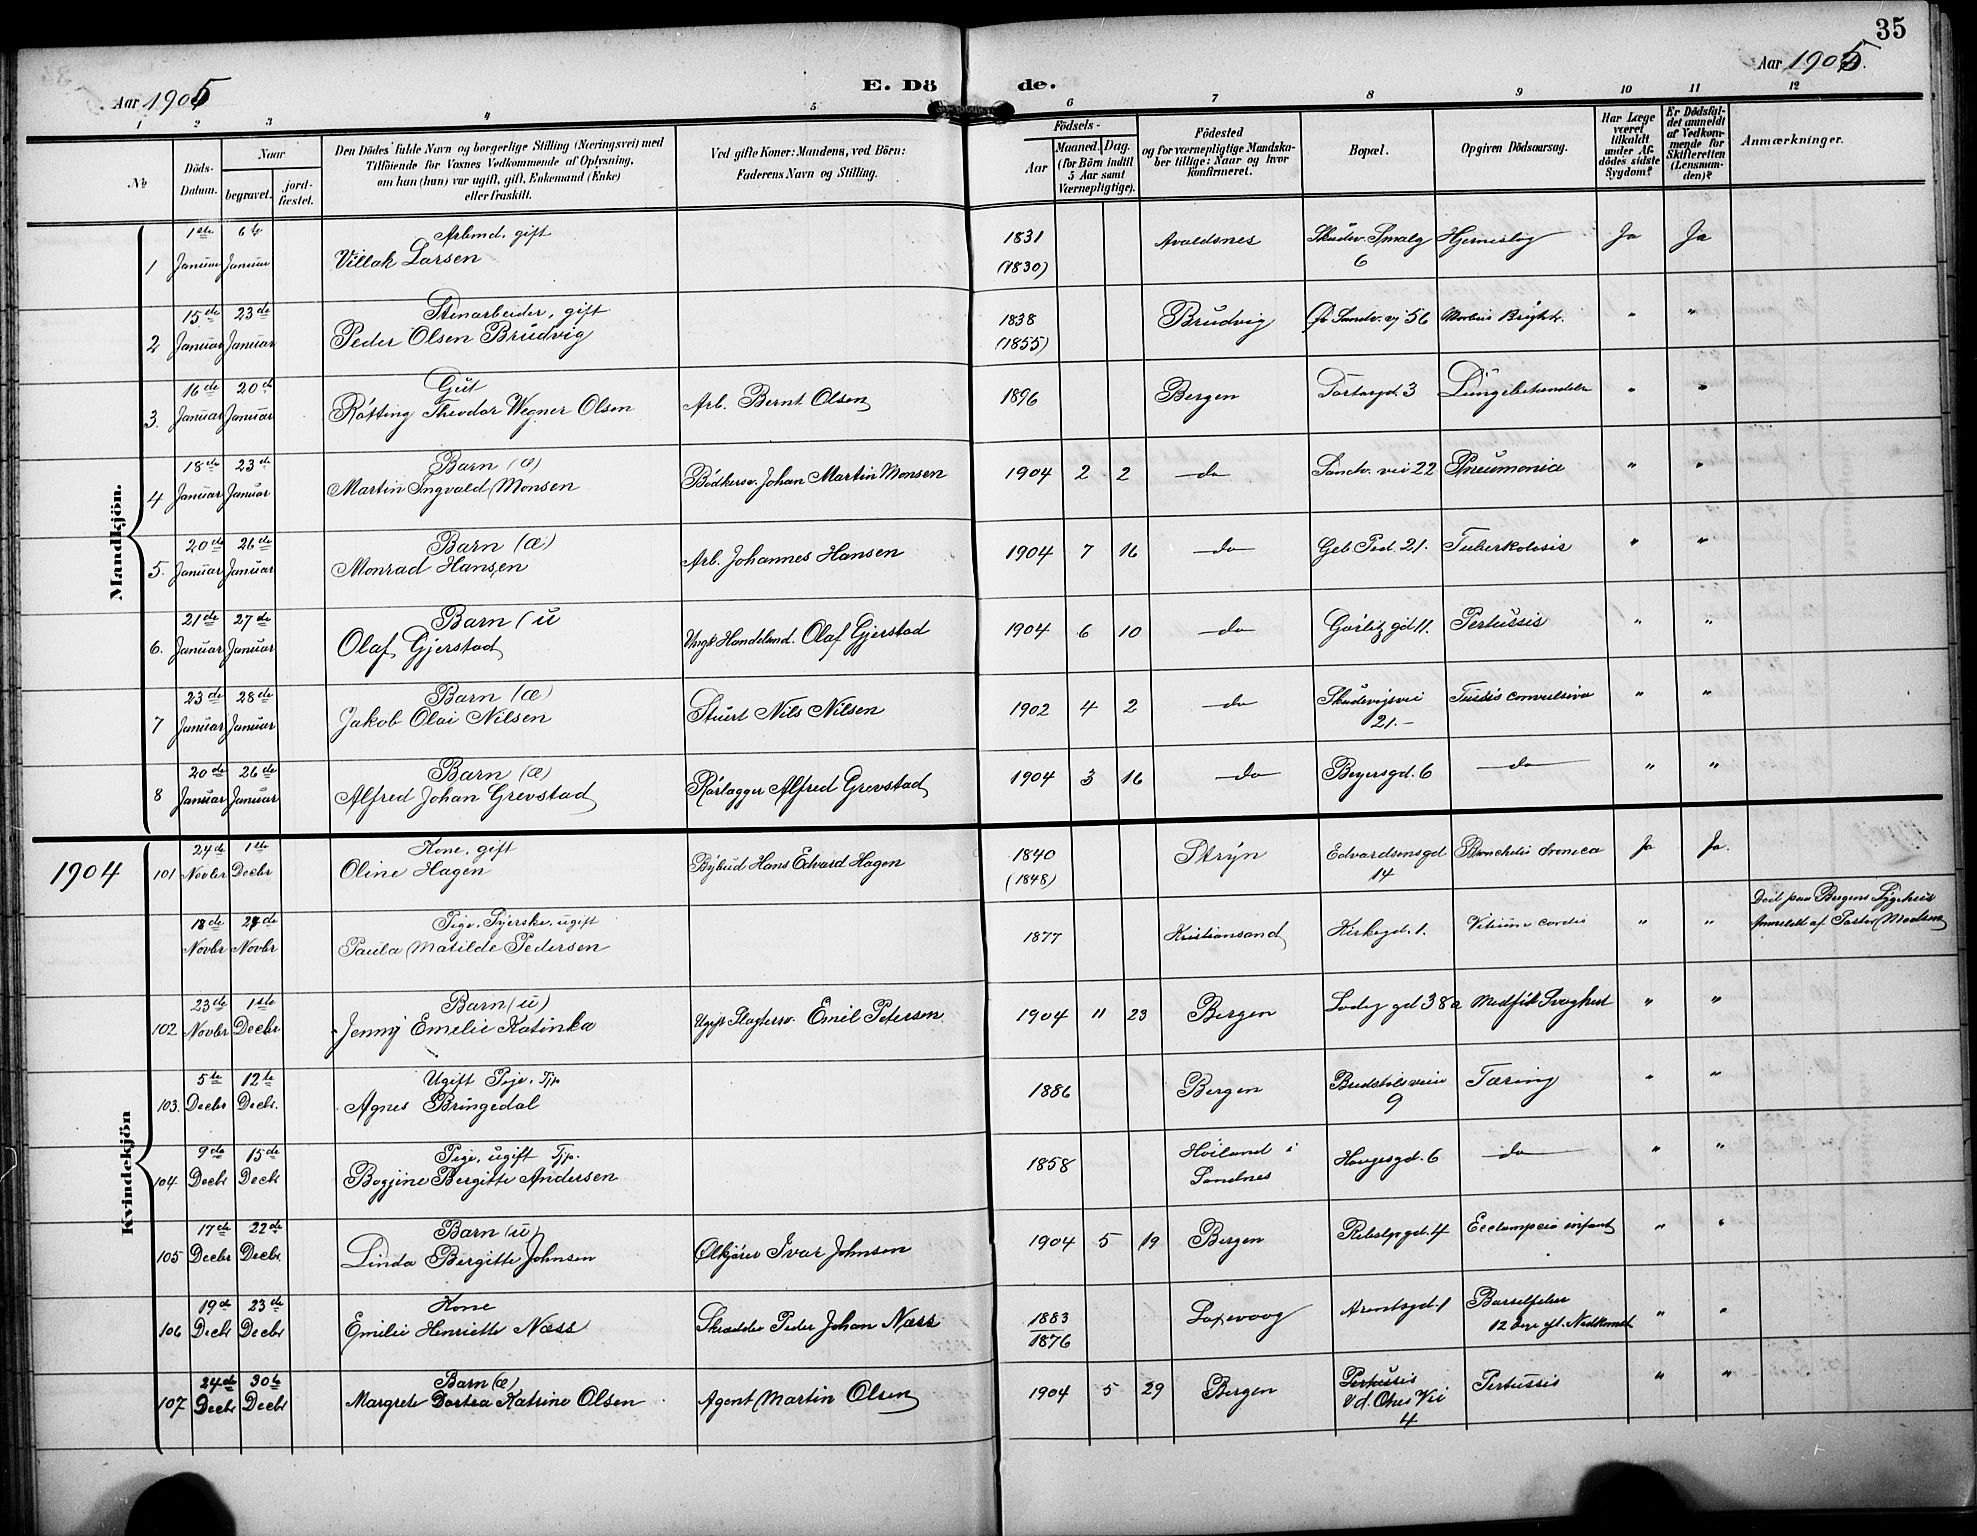 35
Aar 1905
E. Dö
de.
Aar 1905.
1 2 3 4 5 6 7 8 9 10 11 12
No
Döds-Datum.
Naar
begravet.
jord-fæstet.
Den Dödes fulde Navn og borgerlige Stilling (Næringsvei) med
Tilföiende for Voxnes Vedkommende af Oplysning,
om han (hun) var ugift, gift, Enkemand (Enke)
eller fraskilt.
Ved gifte Koner: Mandens, ved Börn:
Faderens Navn og Stilling.
Födsels-
Aar
Maaned. Dag.
(for Börn indtil
5 Aar samt
Værnepligtige).
Födested
og for værnepligtige Mandska-
ber tillige: Naar og hvor
konfirmeret.
Bopæl.
Opgiven Dödsaarsag.
Har Læge
været
tilkaldt
under Af-
dödes sidste
Sygdom?
Er Dödsfal-
det anmeldt
af Vedkom-
mende for
Skifteretten
(Lensman-
den)?
Anmærkninger.
Mandkjön.
1ste 6te Arbmd. gift 1831 Avaldsnes Skudev. Smalg Hjerneslag Ja Ja
1 Januar Januar Villak Larsen (1830) 6
15de 23de Stenarbeider, gift 1838 Brudvig Øv Sandv. vj 56 Morbus Brightii " "
2 Januar Januar Peder Olsen Brudvig (1855)
16de 20d Gut
3. Januar Januar Rötting Theodor Wegner Olsen Arb. Bernt Olsen 1896 Bergen 3 Lungebetændelse " "
18de 23de Barn (æ)
4 Januar Januar Martin Ingvald Monsen Bödkersv. Johan Martin Monsen 1904 2 2 do Sandv. vei 22 Pneumonia " "
20de 26de Barn (æ)
5. Januar Januar Monrad Hansen Arb. Johannes Hansen 1904 7 16 do 21. Tuberkolosis " "
21de 27de Barn (u
6. Januar Januar Olaf Gjerstad Olaf Gjerstad 1904 6 10 do Görlitz gd 11. Pertussis " "
23de 28de Barn (æ) Skudevigsvei Tussis convulsiva
7 Januar Januar Jakob Olai Nilsen Stuert Nils Nilsen 1902 4 2 do 21. " "
20de 26de Barn (æ)
8 Januar Januar Alfred Johan Grevstad Rörlægger Alfred Grevstad 1904 3 16 do Beyersgd. 6 do " "
1904
Kvindekjön
24de 1ste Kone, gift 1840 Stryn Edvardsensgd Bronchitis cronica Ja Ja.
101 Novbr Decbr Oline Hagen Bybud Hans Edvard Hagen (1848) 14
18de 24de Pige, Syerske, ugift Död paa Bergens Sygehus
Novbr Novbr Paula Matilde Pedersen 1877 Kristiansand Kirkegd. 1. Vitium cordis " " Anmeldt af Pastor Madsen
23de 1ste Barn (u)
102 Novbr Decbr Jenny Emelie Katinka Ugift Slagtersv. Emil Petersen 1904 11 23 Bergen gd 38a Medfödt Svaghed " "
5te 12te Ugift Pige, Tjp
103. Decbr Decbr. Agnes Bringedal 1886 Bergen Budstolsveien 9 Tæring " "
9de 15de Pige, ugift Tjp. Höiland i
104 Decbr Decbr Bergitte Andersen 1858 Sandnes Haugesgd. 6 do " "
17de 22de Barn (u)
105 Decbr Decbr. Linda Bergitte Johnsen Ølkjører Ivar Johnson 1904 5 19 Bergen Rebslgrgd. 4 Ecclampsia infant " "
19de 23de Kone 1883 Barselfeber
106 Decbr Decbr Emilie Henriette Næss Skrædder Peder Johan Næss 1876 Laxevaag Arentsgd. 1 12 Dage eft. Nedkomst " "
24de 30te Barn (æ) Pertussis
107 Decbr Decbr Margrete Dortea Katrine Olsen Agent Martin Olsen 1904 5 29 Bergen Vei 4 Pertussis " "